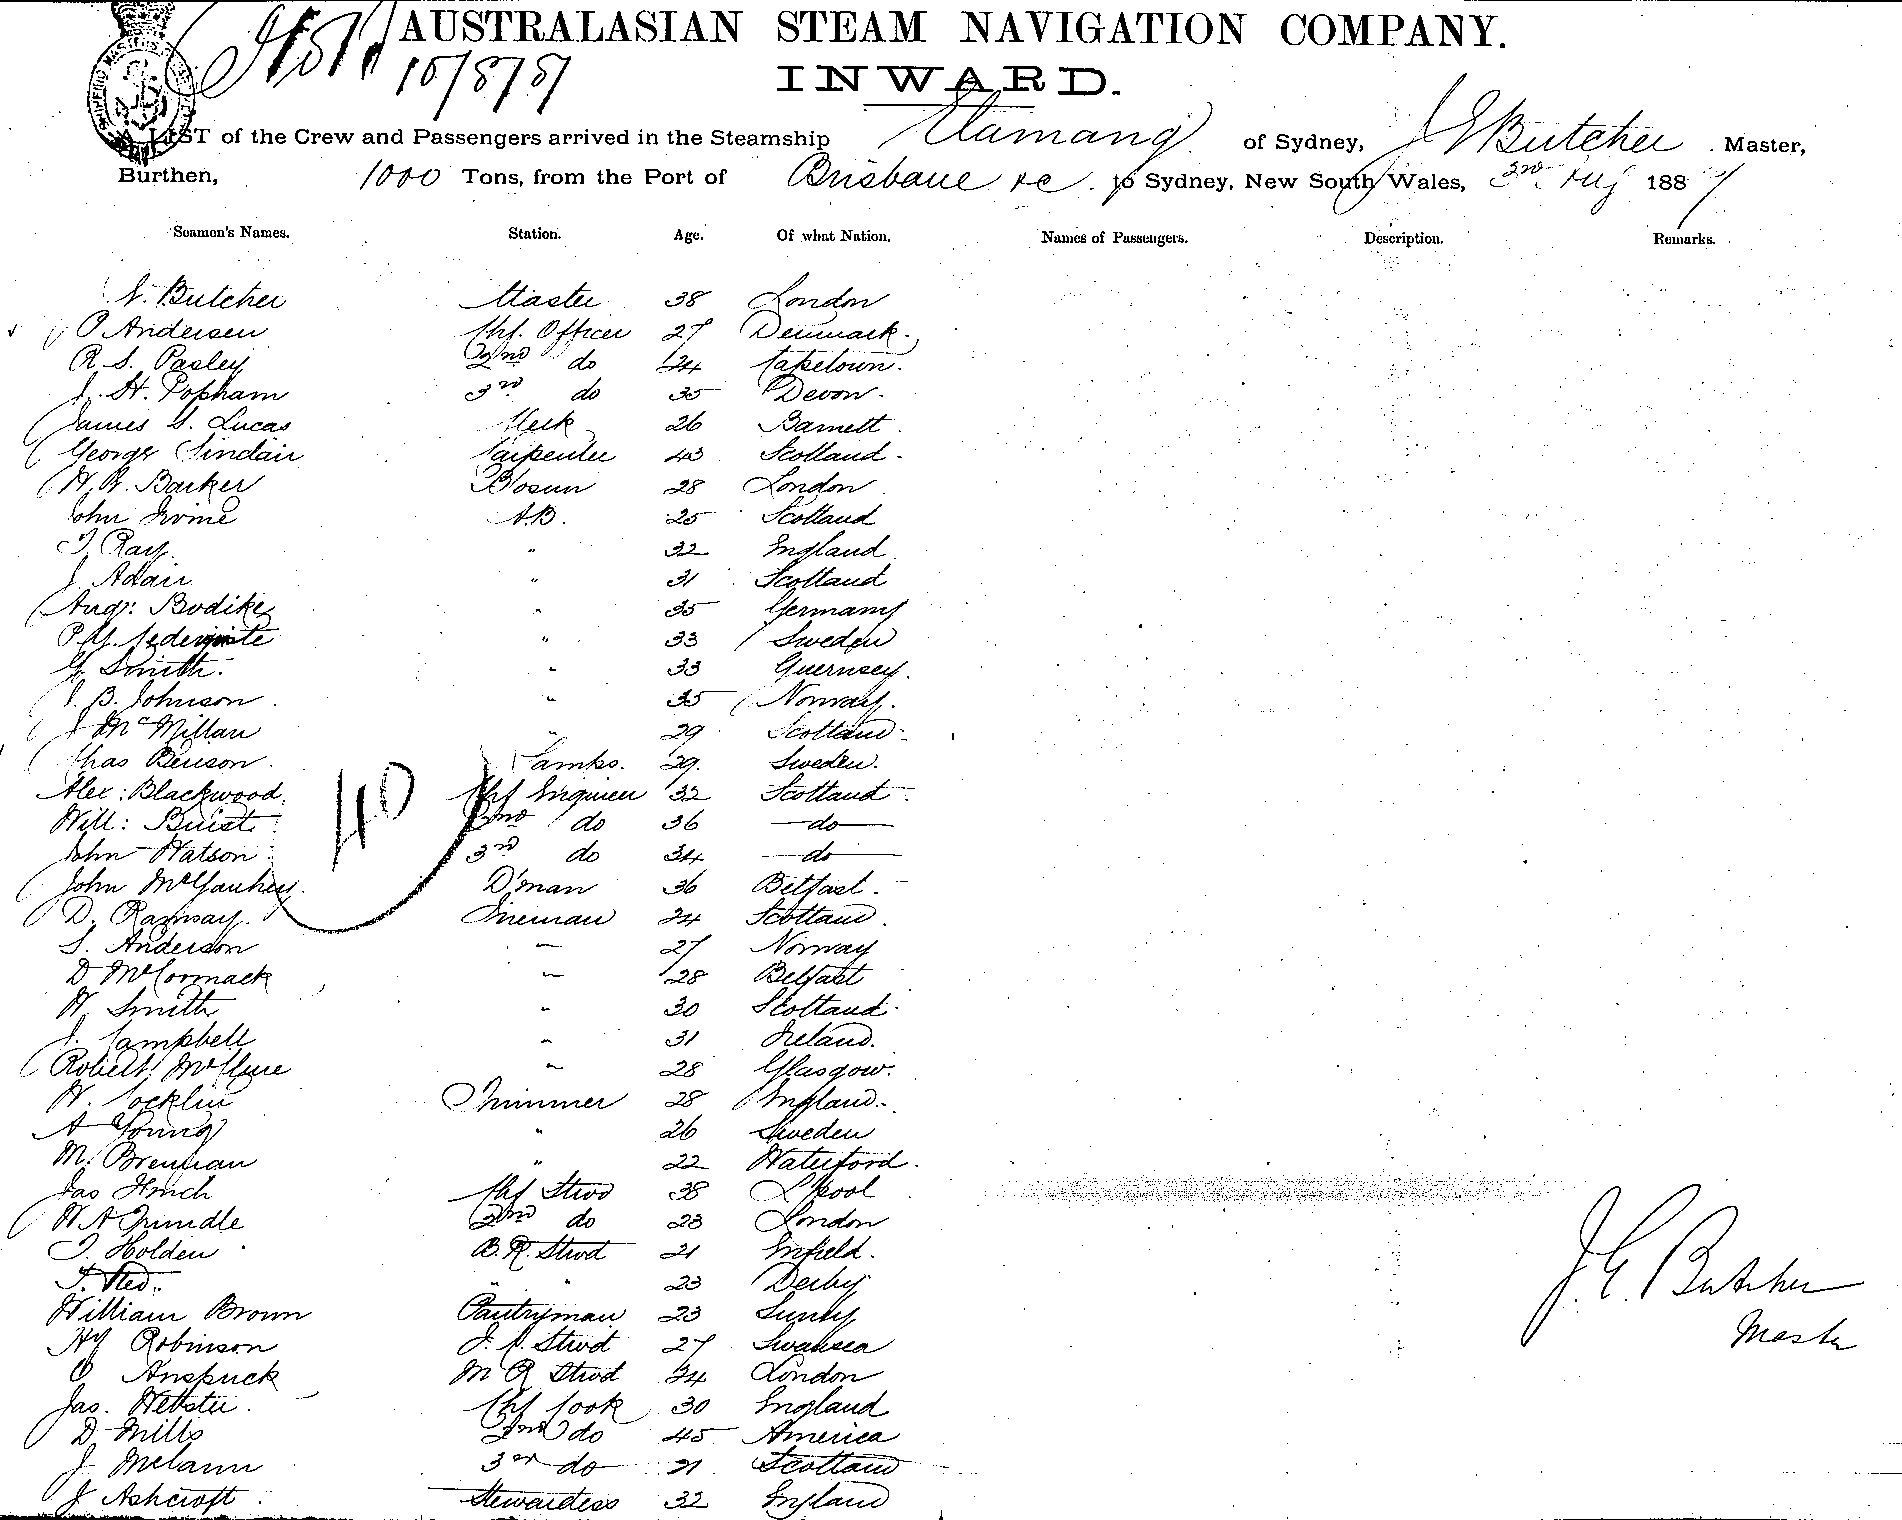 AUSTRALASIAN STEAM NAVIGATION COMPANY.
10/8/87
INWARD.
A LIST of the Crew and Passengers arrived in the Steamship Elamang of Sydney, J E Butcher Master,
Burthen, 1000 Tons, from the Port of Brisbane &c. to Sydney, New South Wales, 3rd Aug 1887
Seamen's Names. Station. Age. Of what Nation. Names of Passengers. Description. Remarks.
Butcher Master 38 London
P Andersen Chf. Officer 27 Denmark.
R. S. Pasley 2nd do 24 Capetown.
J. H. Popham 3rd do 35 Devon.
James S. Lucas Clerk 26 Barnett
George Sinclair Carpenter 43 Scotland.
H. R. Barker Bosun 28 London
John Irvine A.B. 25 Scotland
T. Ray. " 32 England
J. Adair " 31 Scotland
Augs: Bodike " 35 Germany
" 33 Sweden
G Smith. " 33 Guernsey.
J. B. Johnson " 35 Norway.
J McMillan " 29 Scotland.
Chas Benson. Lamps. 29. Sweden.
Alex: Blackwood. Chf Engineer 32 Scotland.
Will: Buist 2nd do 36 do
John Watson 3rd do 34 do
John D'man 36 Belfast.
D. Ramsay. Fireman 24 Scotland.
S. Anderson " 27 Norway
D McCormack " 28 Belfast
W. Smith " 30 Scotland.
J. Campbell " 31 Ireland.
Robert McClure " 28 Glasgow.
W. Cocklin Trimmer 28 England.
A Young " 26 Sweden
M. Brennan " 22 Waterford.
Jas Hinch Chf Stwd 38 L'pool
W A Trindle 2nd do 23 London
T. Holden B.R. Stwd 21 Enfield.
" " 23 Derby
William Brown Pantryman 23 Surrey
Hy Robinson Stwd 27 Swansea
O Anspuck M R Stwd 24 London
Jas. Webster. Chf Cook 30 England
D Mills 2nd do 45 America
J McCann 3rd do 21 Scotland
J Ashcroft Stewardess 32 England
40
J. E. Butcher
Master